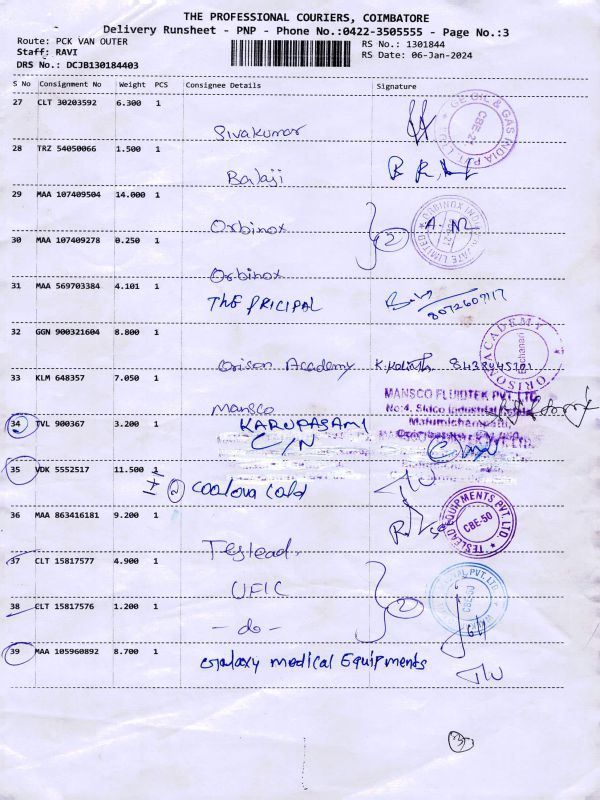 THE PROFESSIONAL COURIERS, COIMBATORE
Delivery Runsheet - PNP - Phone No.:0422-3505555 - Page No.:3
Route: PCK VAN OUTER
RS No.: 1301844
Staff: RAVI
RS Date: 06-Jan-2024
DRS No.: DCJB130184403
S No Consignment No Weight PCS Consignee Details Signature
27 CLT 30203592 6.300 1
Sivakumar
GE OIL & GAS INDIA PVT. LTD
CBE-21
28 TRZ 54050066 1.500 1
Balaji
29 MAA 107409504 14.000 1
Orbinox
2
ORBINOX INDIA PRIVATE LIMITED
30 MAA 107409278 0.250 1
Orbinox
31 MAA 569703384 4.101 1
THE PRICIPAL
8072607117
32 GGN 900321604 8.800 1
Orison Academy
ORISON ACADEMY
33 KLM 648357 7.050 1
Mansco
MANSCO FLUIDTEK PVT. LTD.
No:4, Sidco Industrial Estate
34 TVL 900367 3.200 1
KARUPASAMI
C/N
35 VDK 5552517 11.500 1
1+1
2
36 MAA 863416181 9.200 1
Teslead
TESLEAD EQUIPMENTS PVT. LTD
CBE-50
37 CLT 15817577 4.900 1
UFIC
2
38 CLT 15817576 1.200 1
- do -
39 MAA 105960892 8.700 1
Galaxy medical Equipments